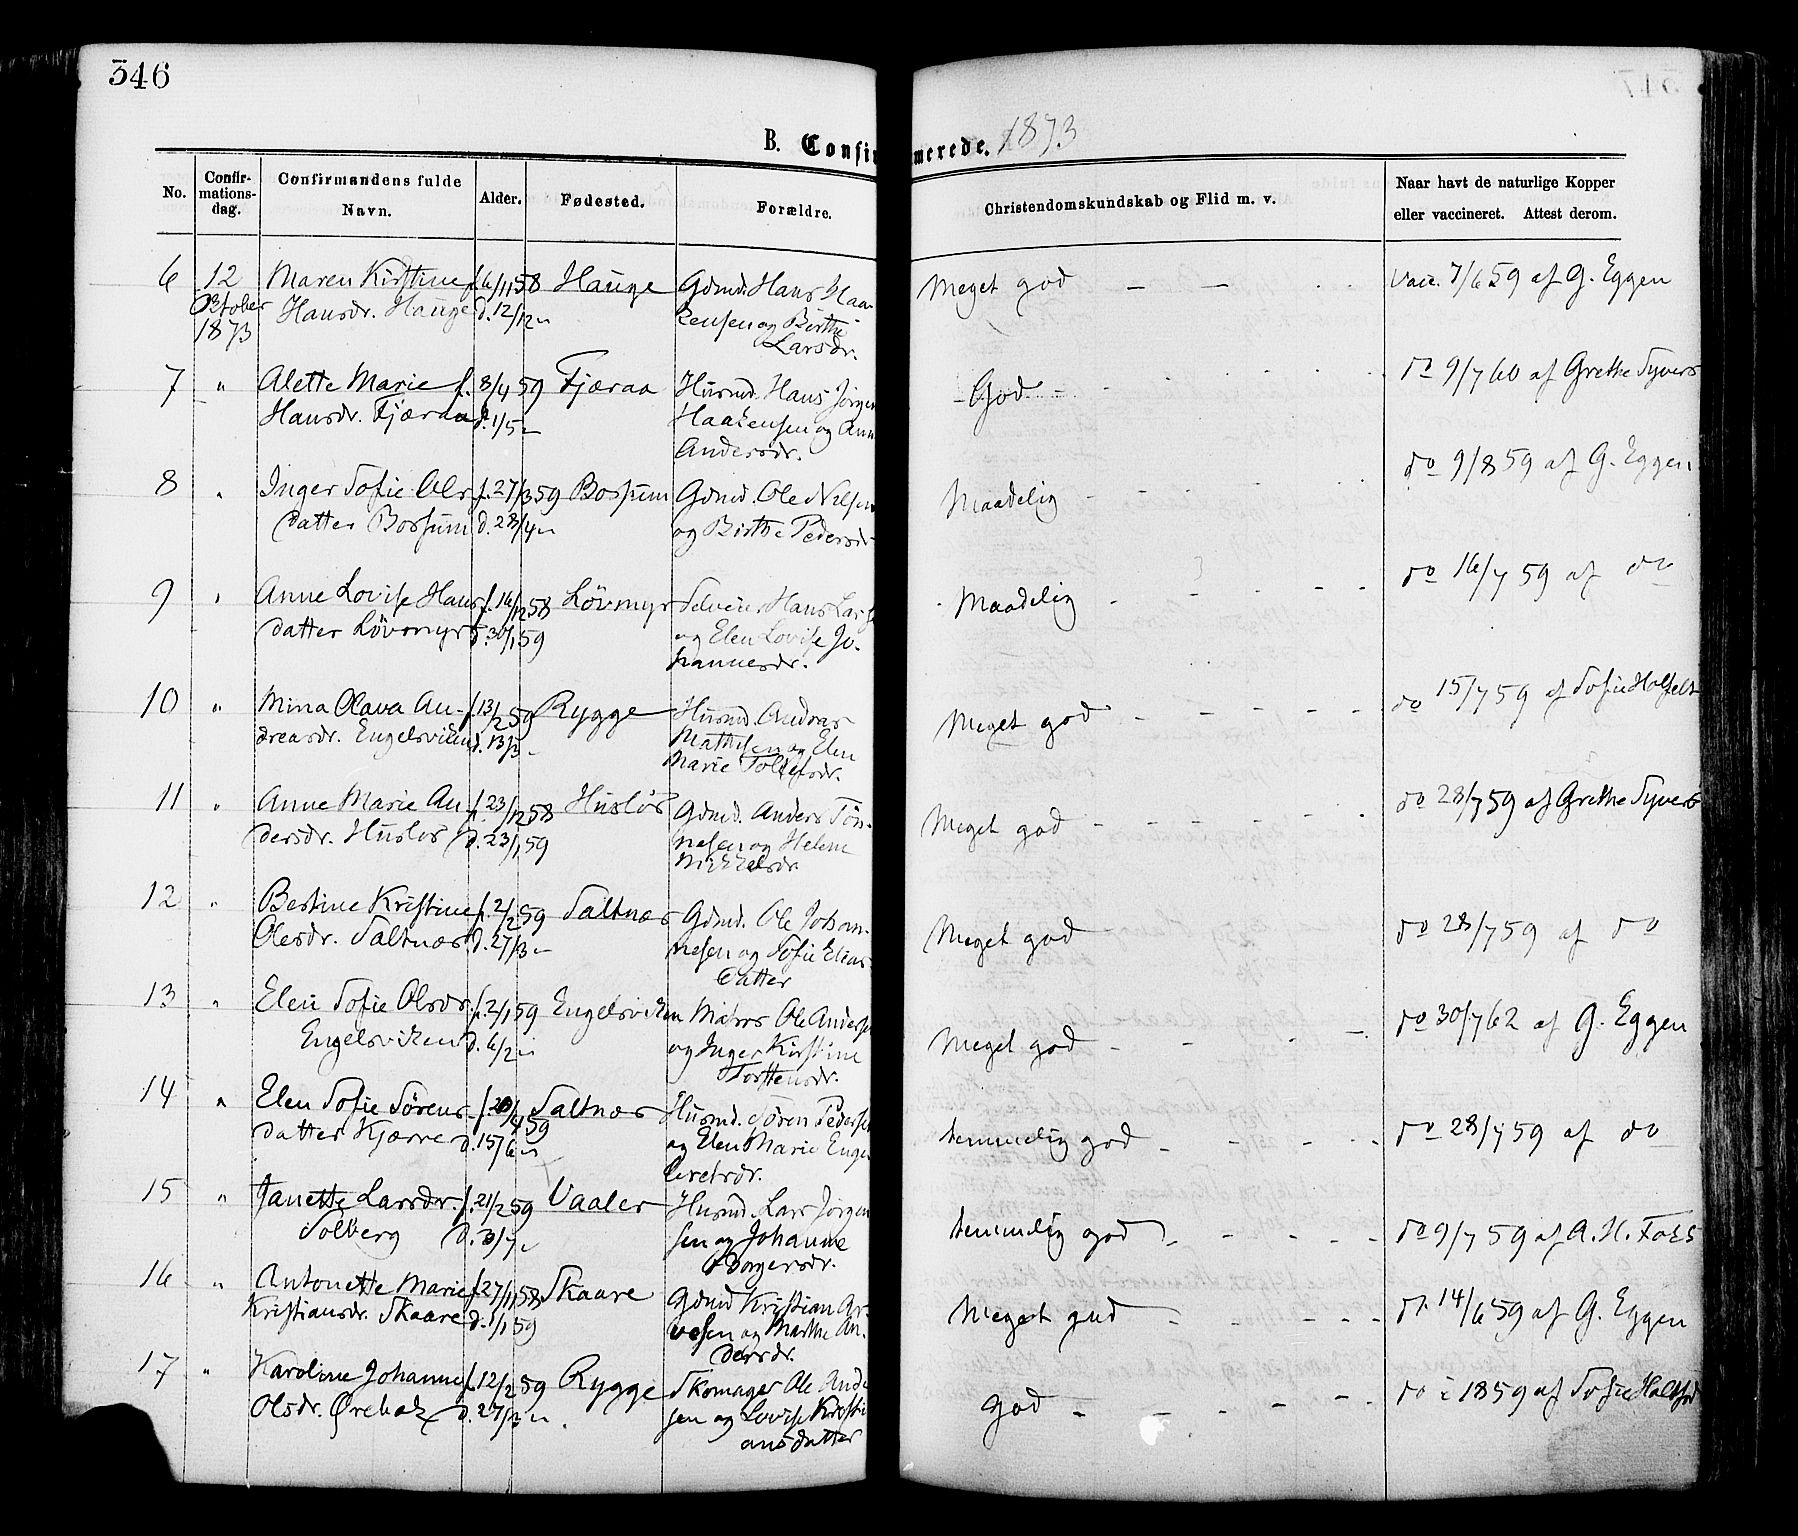 346
B. Confirmerede. 1873
No.
Confir-
mations-
dag.
Confirmandens fulde
Navn.
Alder.
Fødested.
Forældre.
Christendomskundskab og Flid m. v.
Naar havt de naturlige Kopper
eller vaccineret. Attest derom.
6 12 Maren Kirstine f. 6/11 58 Hauge Gdmd. Hans Haa- Meget god — — Vacc. 7/6 59 af G. Eggen
Oktober Hansdr. Hauge d. 12/12 " kensen og Birthe
1873 Larsdr.
7 " Alette Marie f. 8/4 59 Fjæraa Husmd. Hans Jørgen God do 9/7 60 af Grethe Syvers
Hansdr. Fjæraa d. 1/5 " Haakensen og Ann
Andersdr.
8 " Inger Sofie Ols- f. 27/3 59 Bossum Gdmd. Ole Nilsen Maadelig do 9/8 59 af G. Eggen
datter Bossum d. 28/4 " og Birthe Pedersdr
9 " Anne Lovise Hans f. 16/12 58 Lövmyr Selveier Hans Lars Maadelig do 16/7 59 af do
datter Lövmyr d. 30/1 59 og Elen Lovise Jo-
hannesdr.
10 " Mina Olava An- f. 13/2 59 Rygge Husmd. Andreas Meget god do 15/7 59 af Sofie Holfelt
dreasdr. Engelsviken d. 13/3 " Mathisen og Elen
Marie Tollefsdr.
11 " Anne Marie An- f. 23/12 58 Huslös Gdmd. Anders Tön- Meget god do 28/7 59 af Grethe Syvers
dersdr. Huslos d. 23/1 59 nesen og Helene
Mikkelsdr.
12 " Bertine Kristine f. 2/2 59 Saltnæs Gdmd. Ole Johan- Meget god do 28/7 59 af do
Olesdr. Saltnæs d. 27/3 " nesen og Sofie Elias
datter
13 " Elen Sofie Olsdr. f. 2/1 59 Engelsviken Matros Ole Anders Meget god do 30/7 62 af G. Eggen
Engelsviken d. 6/2 " og Inger Kirstine
Torstensdr.
14 " Elen Sofie Sörens- f. 20/4 59 Saltnæs Husmd. Sören Peders temmelig god do 28/7 59 af do
datter Kjærre d. 15/6 " og Elen Marie Enge
bretsdr.
15 " Janette Larsdr. f. 21/2 59 Vaaler Husmd. Lars Jørgen temmelig god do 9/7 59 af A. H. Foss
Solberg d. 3/7 " sen og Johanne
Borgersdr.
16 " Antonette Marie f. 27/11 58 Skaare Gdmd Kristian Ar- Meget god do 14/6 59 af G. Eggen
Kristiansdr. Skaare d. 1/1 59 vesen og Marthe An-
dersdr.
17 " Karoline Johanne f. 12/2 59 Rygge Skomager Ole Ande God do i 1859 af Sofie Holtfod
Olsdr. Ørebæk d. 27/3 " sen og Lovise Kristi
ansdatter